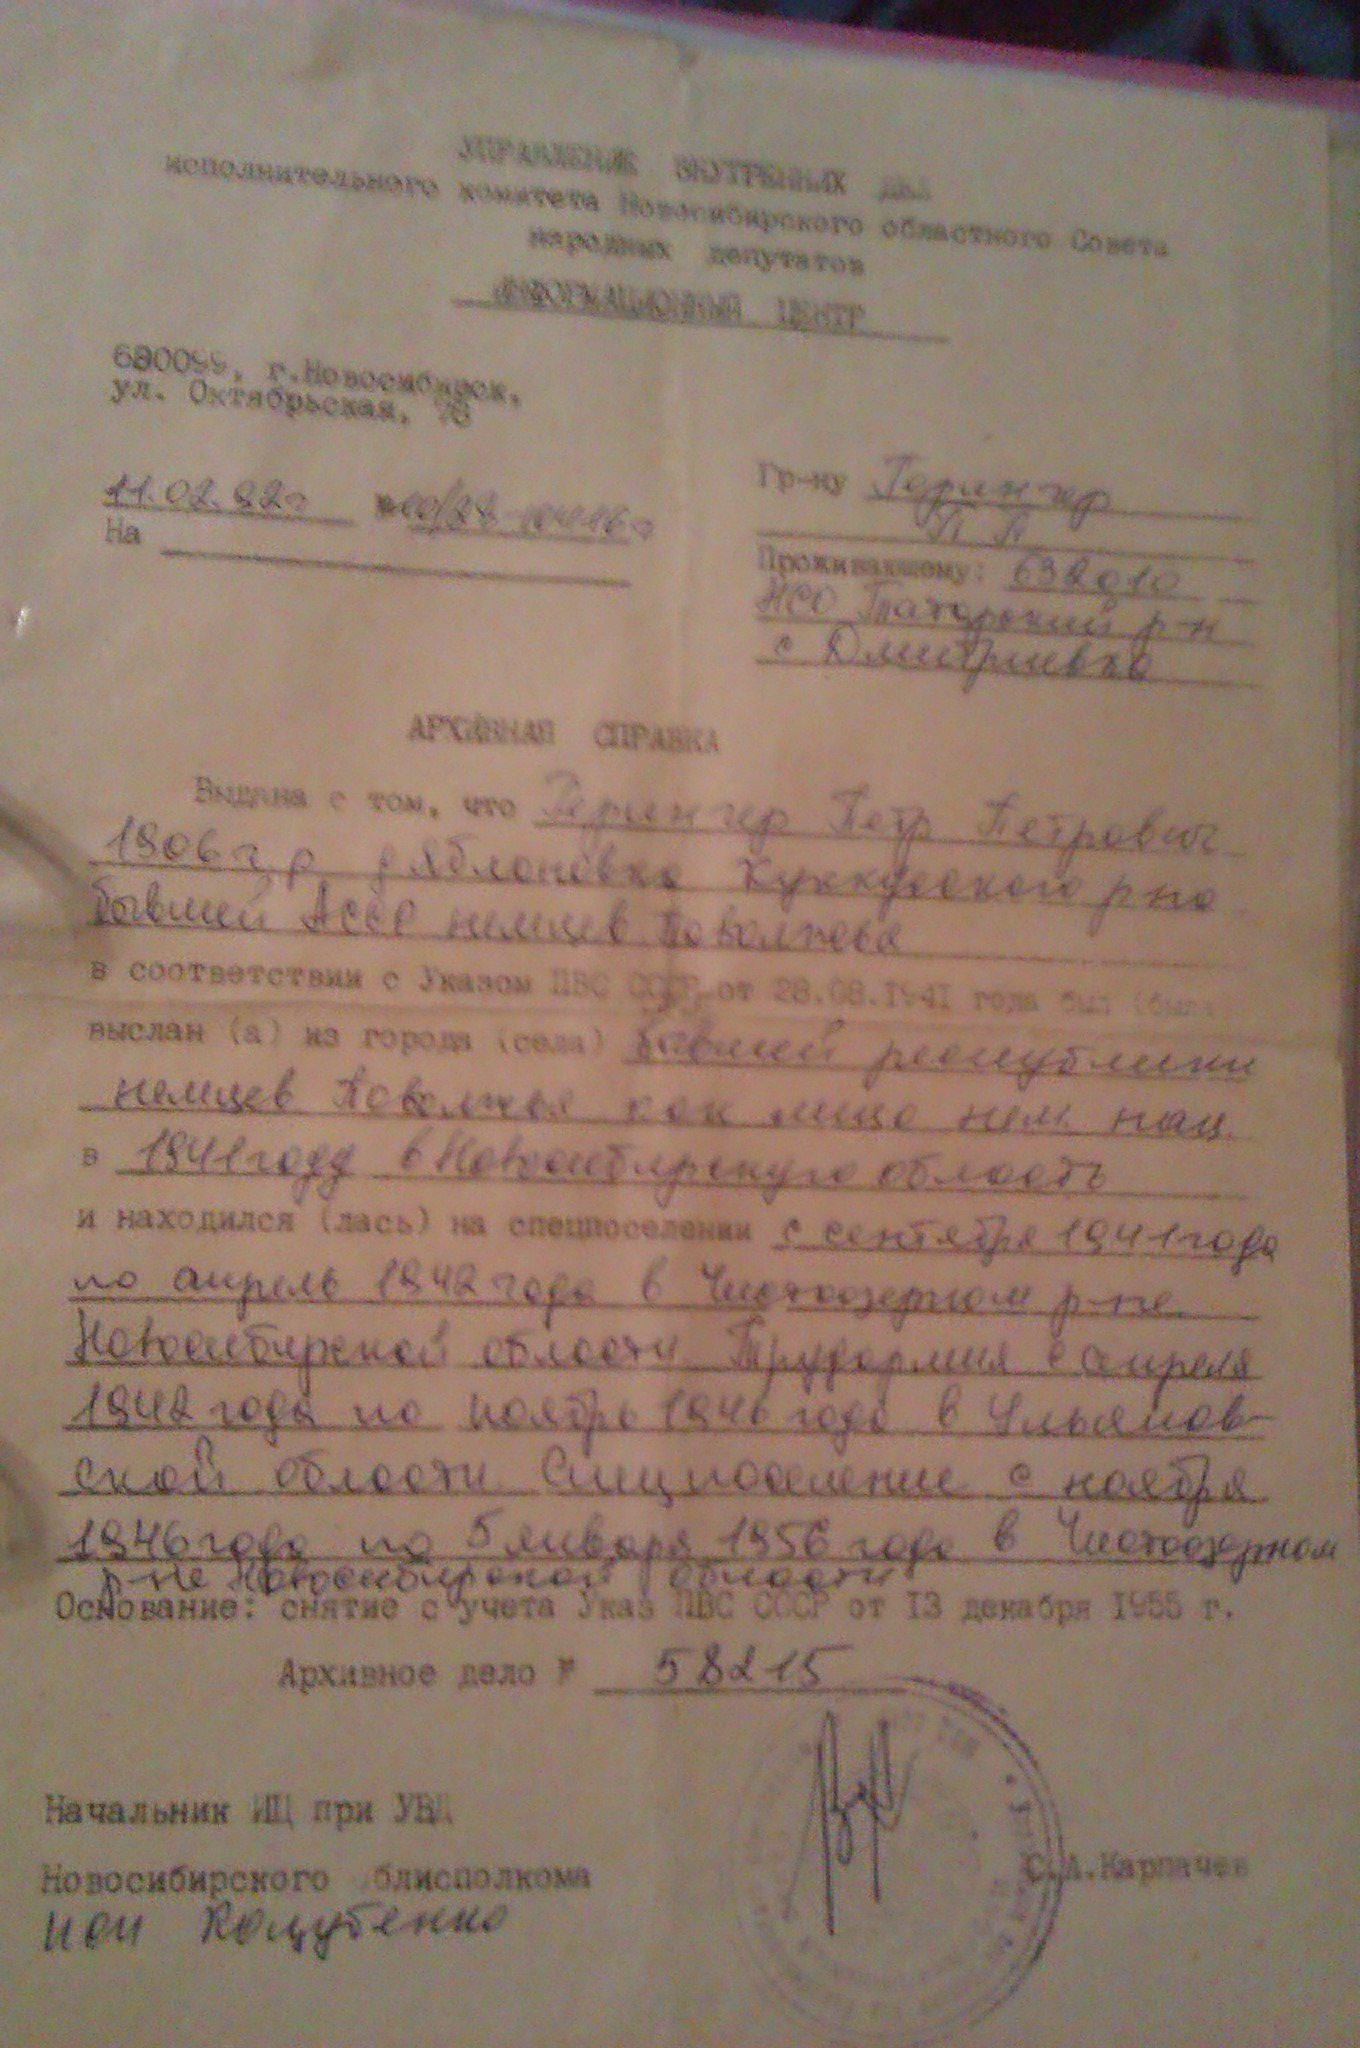 УПРАВЛЕНИЕ ВНУТРЕННИХ ДЕЛ
исполнительного комитета Новосибирского областного Совета
народных депутатов
ИНФОРМАЦИОННЫЙ ЦЕНТР
630099, г.Новосибирск,
ул. Октябрьская, 78
11.02.92г
Гр-ну Герингер
П П
На
Проживающему: 632010
НСО Татарский р-н
с Дмитриевка
АРХИВНАЯ СПРАВКА
Выдана с том, что Герингер Петр Петрович
1906 г.р. д Яблоновка Куккусского р-на
бывшей АССР немцев Поволжья
в соответствии с Указом ПВС СССР от 28.08.1941 года был (была)
выслан (а) из города (села) бывшей республики
немцев Поволжья как лицо нем. нац.
в 1941 году в Новосибирскую область
и находился (лась) на спецпоселении с сентября 1941 года
по апрель 1942 года в Чистоозерном р-не
Новосибирской области Трудармия с апреля
1942 года по ноябрь 1946 года в Ульянов-
ской области Спецпоселение с ноября
1946 года по 5 января 1956 года в Чистоозерном
р-не Новосибирской области
Основание: снятие с учета Указ ПВС СССР от 13 декабря 1955 г.
Архивное дело № 58215
Начальник ИЦ при УВД
Новосибирского блисполкома
С.А.Карпачев
исп Кацубенко